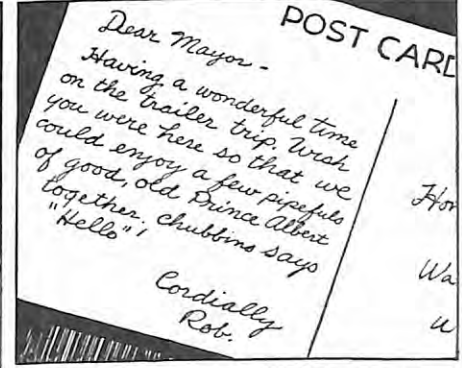 POST CARD
Dear Mayor -
Having a wonderful time
on the trailer trip. Wish
you were here so that we
could enjoy a few pipefuls
of good, old Prince Albert
together. Chubbins says
"Hello"!
Cordially
Rob.